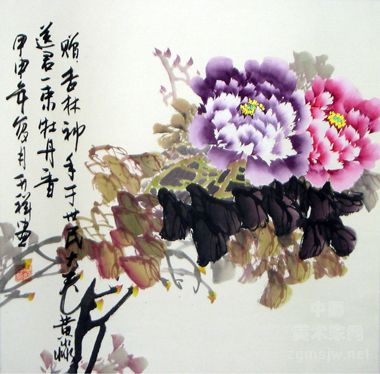 赠杏林神手于世民大夫
送君一束牡丹香
甲申年夏月
中国
美术家网
zgmsjw.net